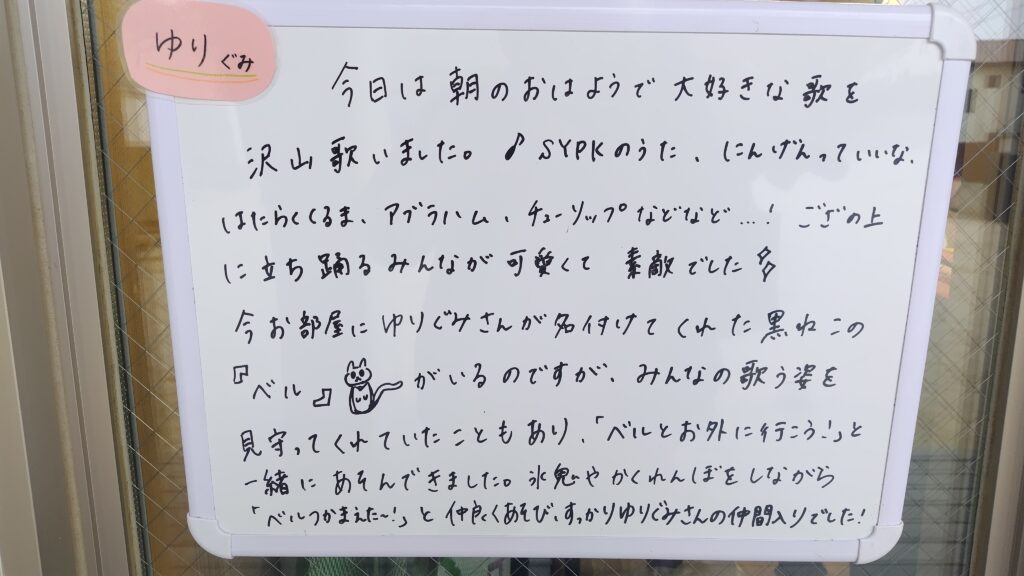 ゆりぐみ
今日は朝のおはようで大好きな歌を
沢山歌いました。♪SYPKのうた、にんげんっていいな、
はたらくくるま、アブラハム、チューリップなどなど…！ござの上
に立ち踊るみんなが可愛くて素敵でした
今お部屋にゆりぐみさんが名付けてくれた黒ねこの
『ベル』がいるのですが、みんなの歌う姿を
見守ってくれていたこともあり、「ベルとお外に行こう！」と
一緒にあそんできました。氷鬼やかくれんぼをしながら
「ベルつかまえた〜！」と仲良くあそび、すっかりゆりぐみさんの仲間入りでした！